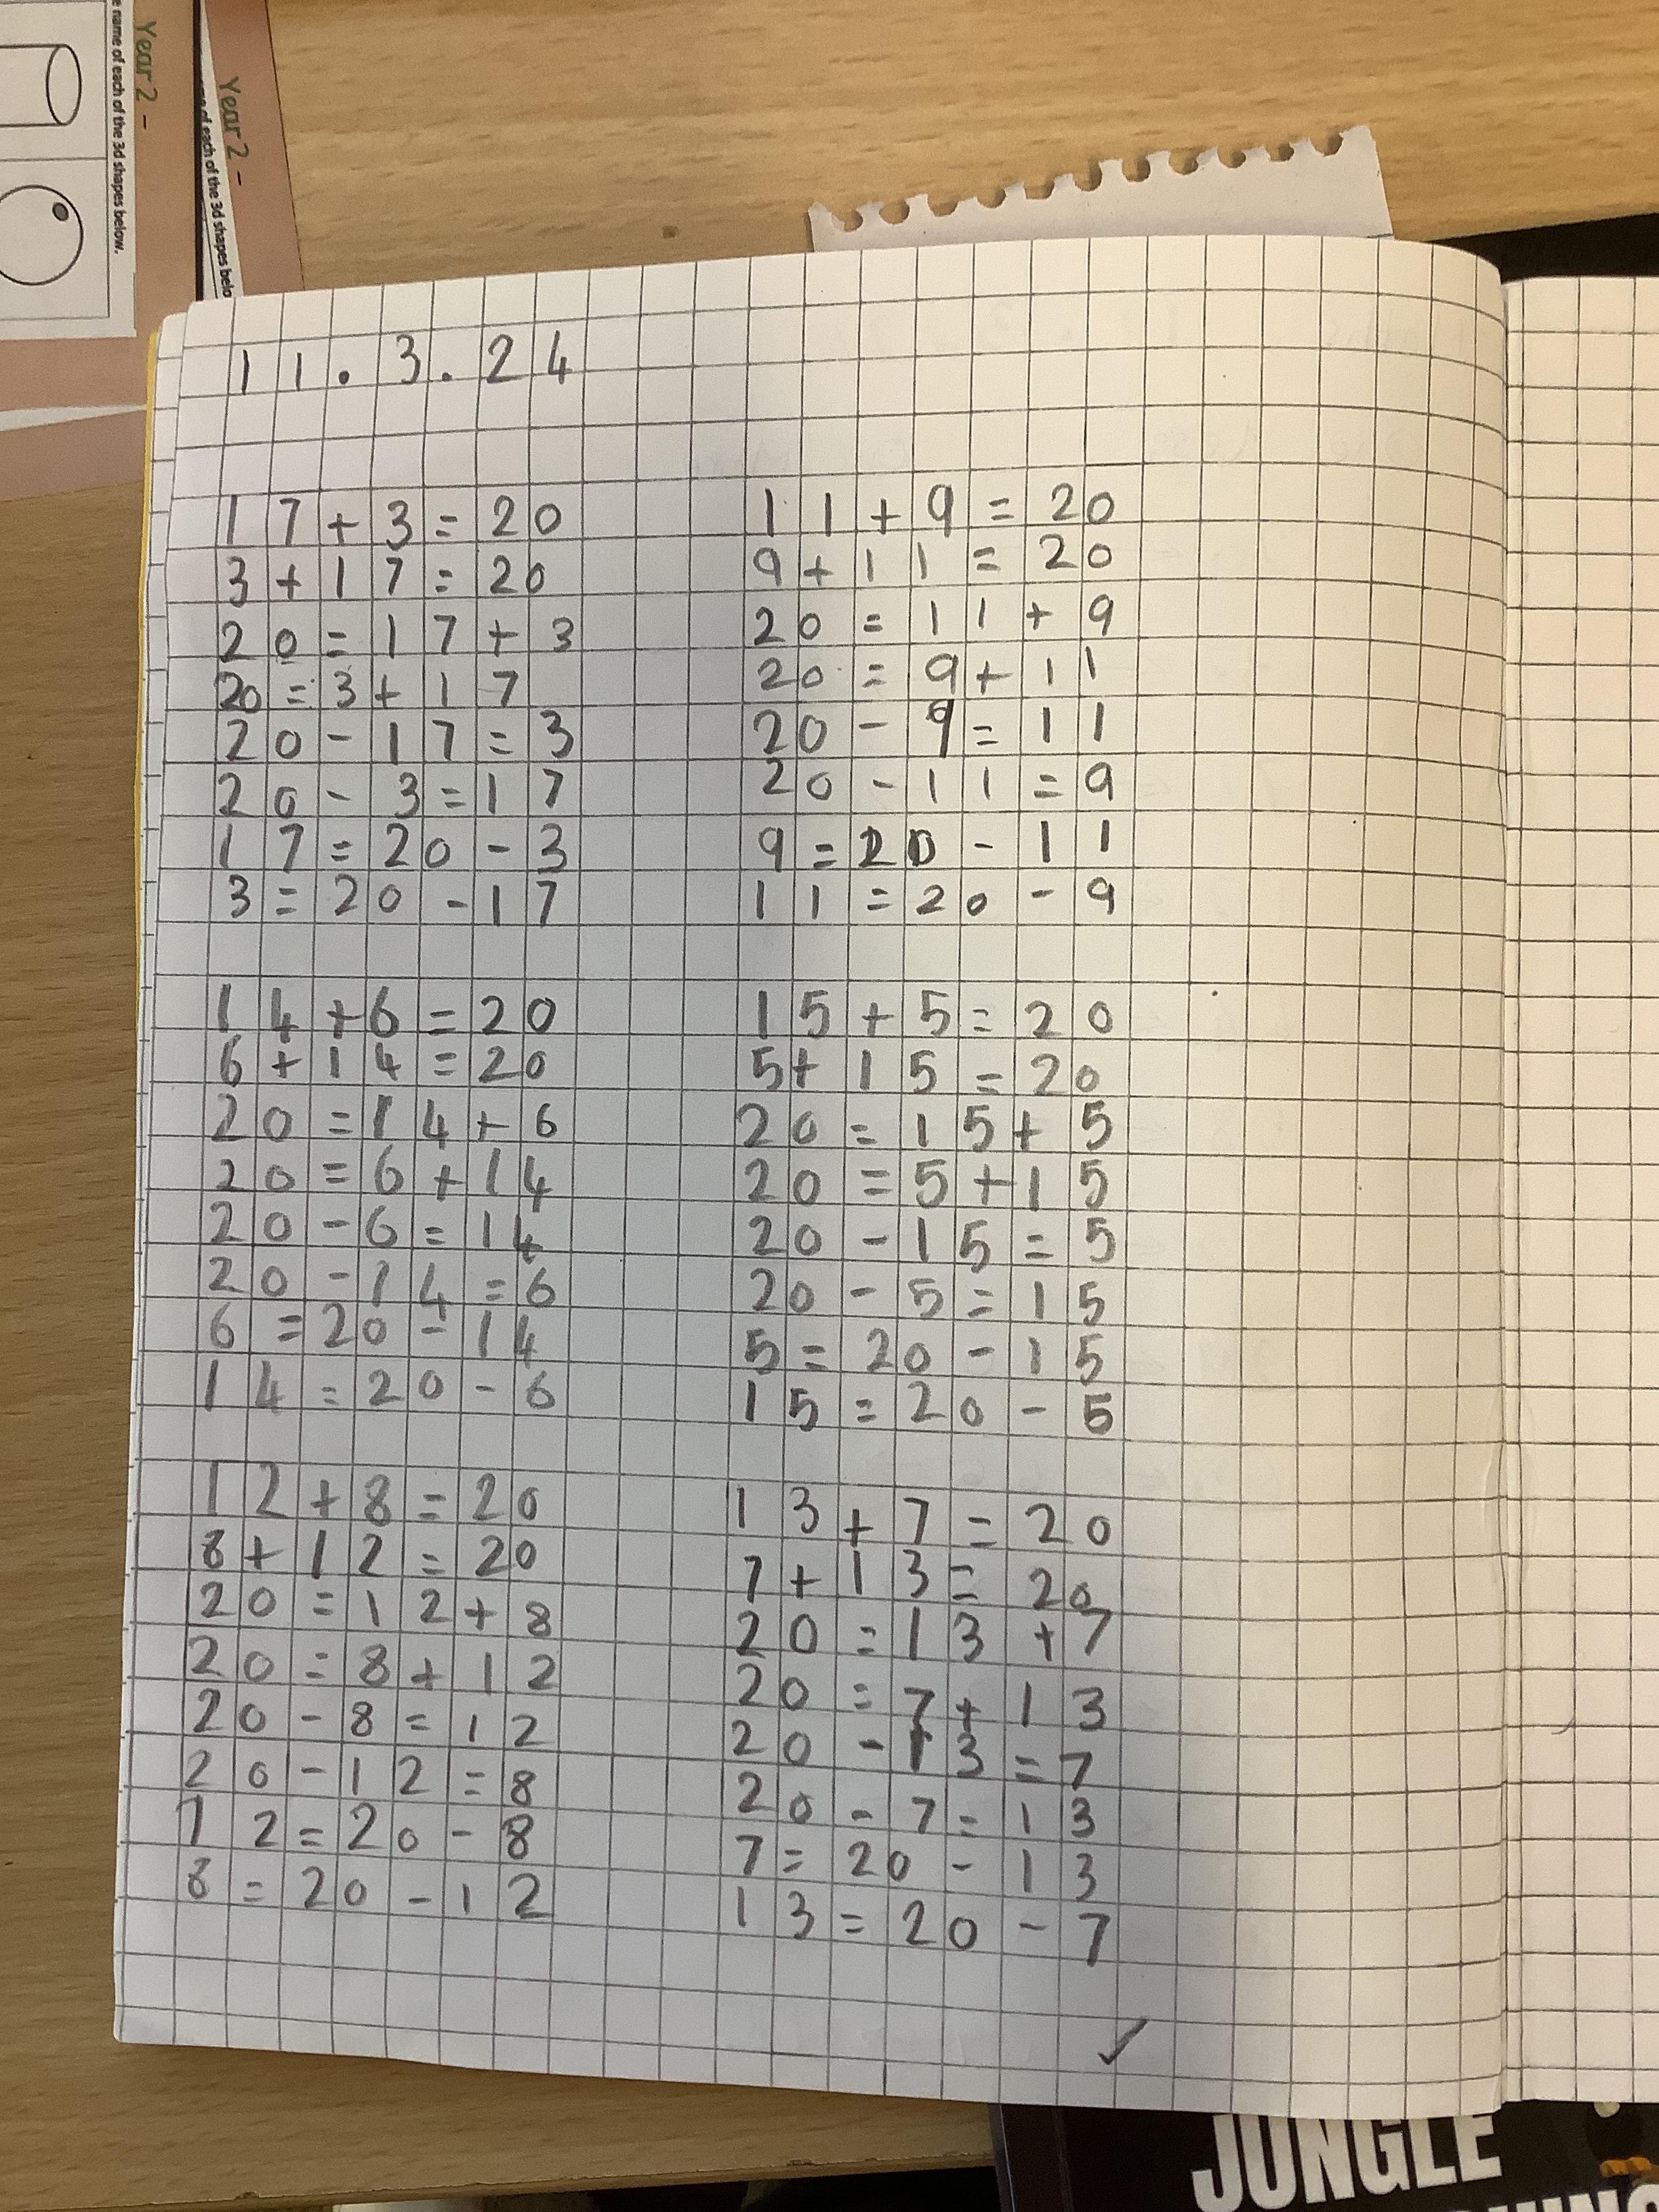 Year 2 -
e name of each of the 3d shapes below.
Year 2 -
of each of the 3d shapes belo
11.3.24
17+3=20
3+17=20
20=17+3
20=3+17
20-17=3
20-3=17
17=20-3
3=20-17
11+9=20
9+11=20
20=11+9
20=9+11
20-9=11
20-11=9
9=20-11
11=20-9
14+6=20
6+14=20
20=14+6
20=6+14
20-6=14
20-14=6
6=20-14
14=20-6
15+5=20
5+15=20
20=15+5
20=5+15
20-15=5
20-5=15
5=20-15
15=20-5
12+8=20
8+12=20
20=12+8
20=8+12
20-8=12
20-12=8
12=20-8
8=20-12
13+7=20
7+13=20
20=13+7
20=7+13
20-13=7
20-7=13
7=20-13
13=20-7
JUNGLE